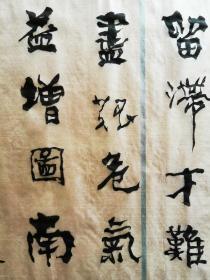 留滯才難
盡艱危氣
益增圖南